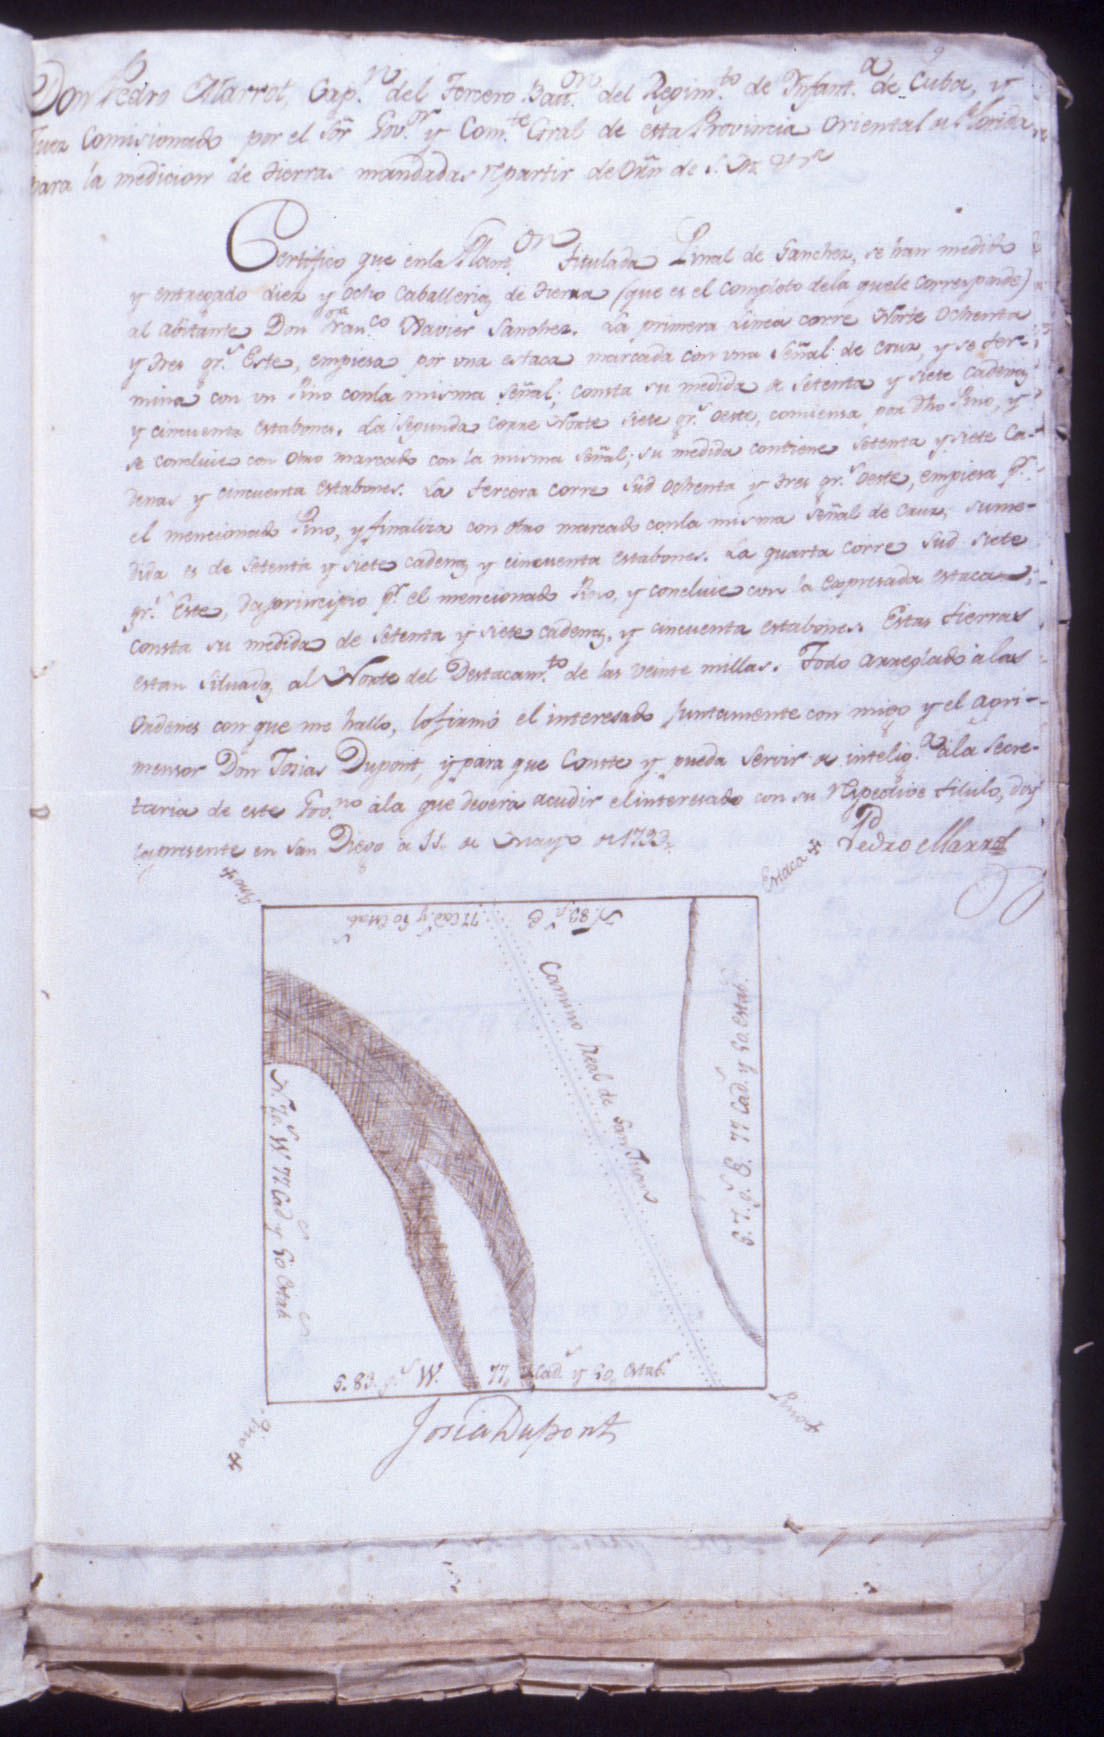 9
Don Pedro Marrot, Cap.n del Tercero Bat.on del Regim.to de Ynfant.a de Cuba, y
Juez Comisionado por el Sôr Gov.or y Com.te Gral de esta Provincia Oriental de Florida
para la medicion de tierras mandadas repartir de Orñ de S. M.
Certifico que en la Plant.on titulada Pinal de Sanchez, se han medido
y entregado diez y ocho Caballerias de tierra (que es el completo de la que le corresponde)
al abitante Don Fran.co Xavier Sanchez. La primera Linea corre Norte Ochenta
y tres gr.s Este, empiesa por una estaca marcada con una señal de cruz, y se ter-
mina con un Pino con la misma señal; consta su medida de setenta y siete cadenas
y cincuenta estabones. La segunda corre Norte siete gr.s Oeste, comiensa por Dho Pino, y
se concluie con otro marcado con la misma señal; su medida contiene setenta y siete Ca-
denas y cincuenta estabones. La tercera corre Sud ochenta y tres gr.s Oeste, empiesa p.r
el mencionado Pino, y finaliza con otro marcado con la misma señal de cruz; su me-
dida es de setenta y siete cadenas y cincuenta estabones. La quarta corre Sud siete
gr.s Este, da principio p.r el mencionado Pino, y concluie con la Expresada estaca;
consta su medida de setenta y siete cadenas, y cincuenta estabones. Estas tierras
estan situadas al Norte del Destacam.to de las veinte millas. Todo arreglado à las
Ordenes con que me hallo, lo firmó el interesado juntamente con migo y el Agri-
mensor Don Josias Dupont, y para que Conste y pueda servir de intelig.a à la Secre-
taria de este Gov.no à la que deverá acudir el interesado con su respectivo titulo, doy
la presente en San Diego a 11. de Mayo de 1793.
Pedro Marrot
Estaca
Pino
N. 83 g.s E 77 Cad.s y 50 estab.s
Camino Real de San Juan
S. 7. g.s E. 77 Cad.s y 50 estab.s
N. 7 g.s W 77 Cad.s y 50 Estab.s
S. 83. g.s W. 77, Cad.s y 50, estab.s
Pino
Pino
Josia Dupont